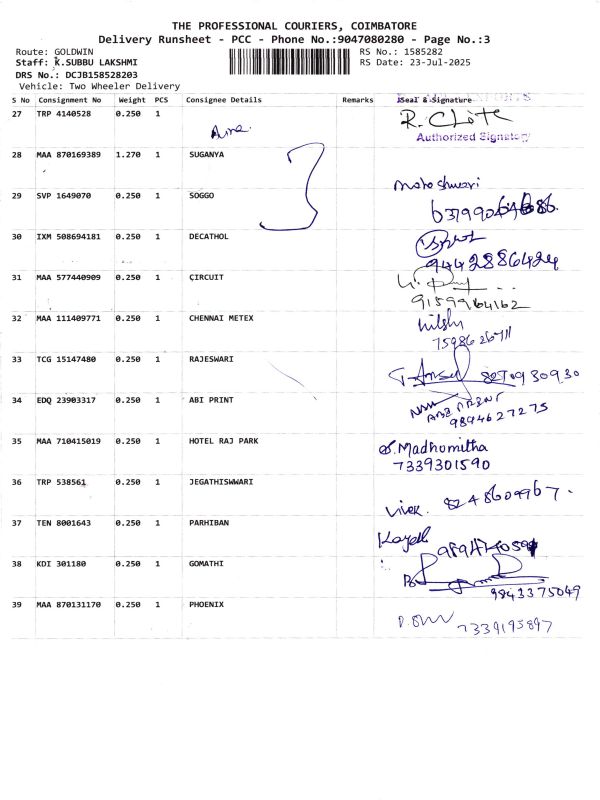 THE PROFESSIONAL COURIERS, COIMBATORE
Delivery Runsheet - PCC - Phone No.:9047080280 - Page No.:3
Route: GOLDWIN RS No.: 1585282
Staff: K.SUBBU LAKSHMI RS Date: 23-Jul-2025
DRS No.: DCJB158528203
Vehicle: Two Wheeler Delivery
S No Consignment No Weight PCS Consignee Details Remarks Seal & Signature
27 TRP 4140528 0.250 1
Authorized Signatory
28 MAA 870169389 1.270 1 SUGANYA
29 SVP 1649070 0.250 1 SOGGO
30 IXM 508694181 0.250 1 DECATHOL
9442886424
31 MAA 577440909 0.250 1 CIRCUIT
9159964162
32 MAA 111409771 0.250 1 CHENNAI METEX
33 TCG 15147480 0.250 1 RAJESWARI
34 EDQ 23903317 0.250 1 ABI PRINT
ABI PRINT
9894627275
35 MAA 710415019 0.250 1 HOTEL RAJ PARK
S. Madhumitha
7339301590
36 TRP 538561 0.250 1 JEGATHISWWARI
Vivek. 8248609967.
37 TEN 8001643 0.250 1 PARHIBAN
38 KDI 301180 0.250 1 GOMATHI
9843375049
39 MAA 870131170 0.250 1 PHOENIX
7339195897